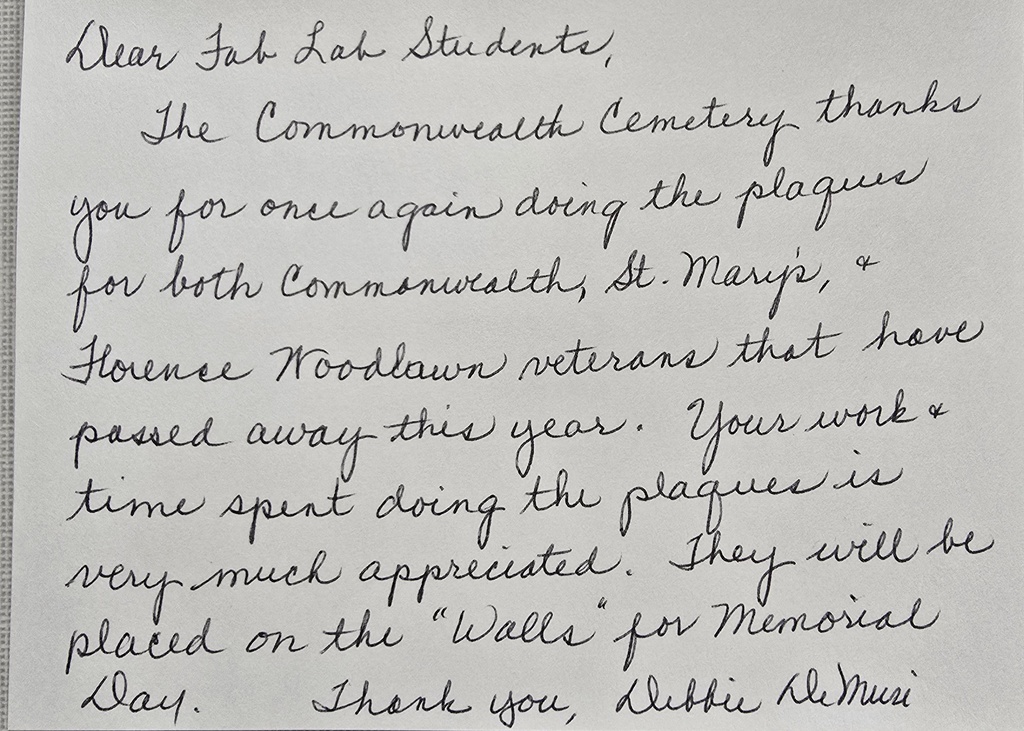 Dear Fab Lab Students,
The Commonwealth Cemetery thanks
you for once again doing the plaques
for both Commonwealth, St. Mary's, &
Florence Woodlawn veterans that have
passed away this year. Your work &
time spent doing the plaques is
very much appreciated. They will be
placed on the "Walls" for Memorial
Day. Thank you, Debbie DeMuri